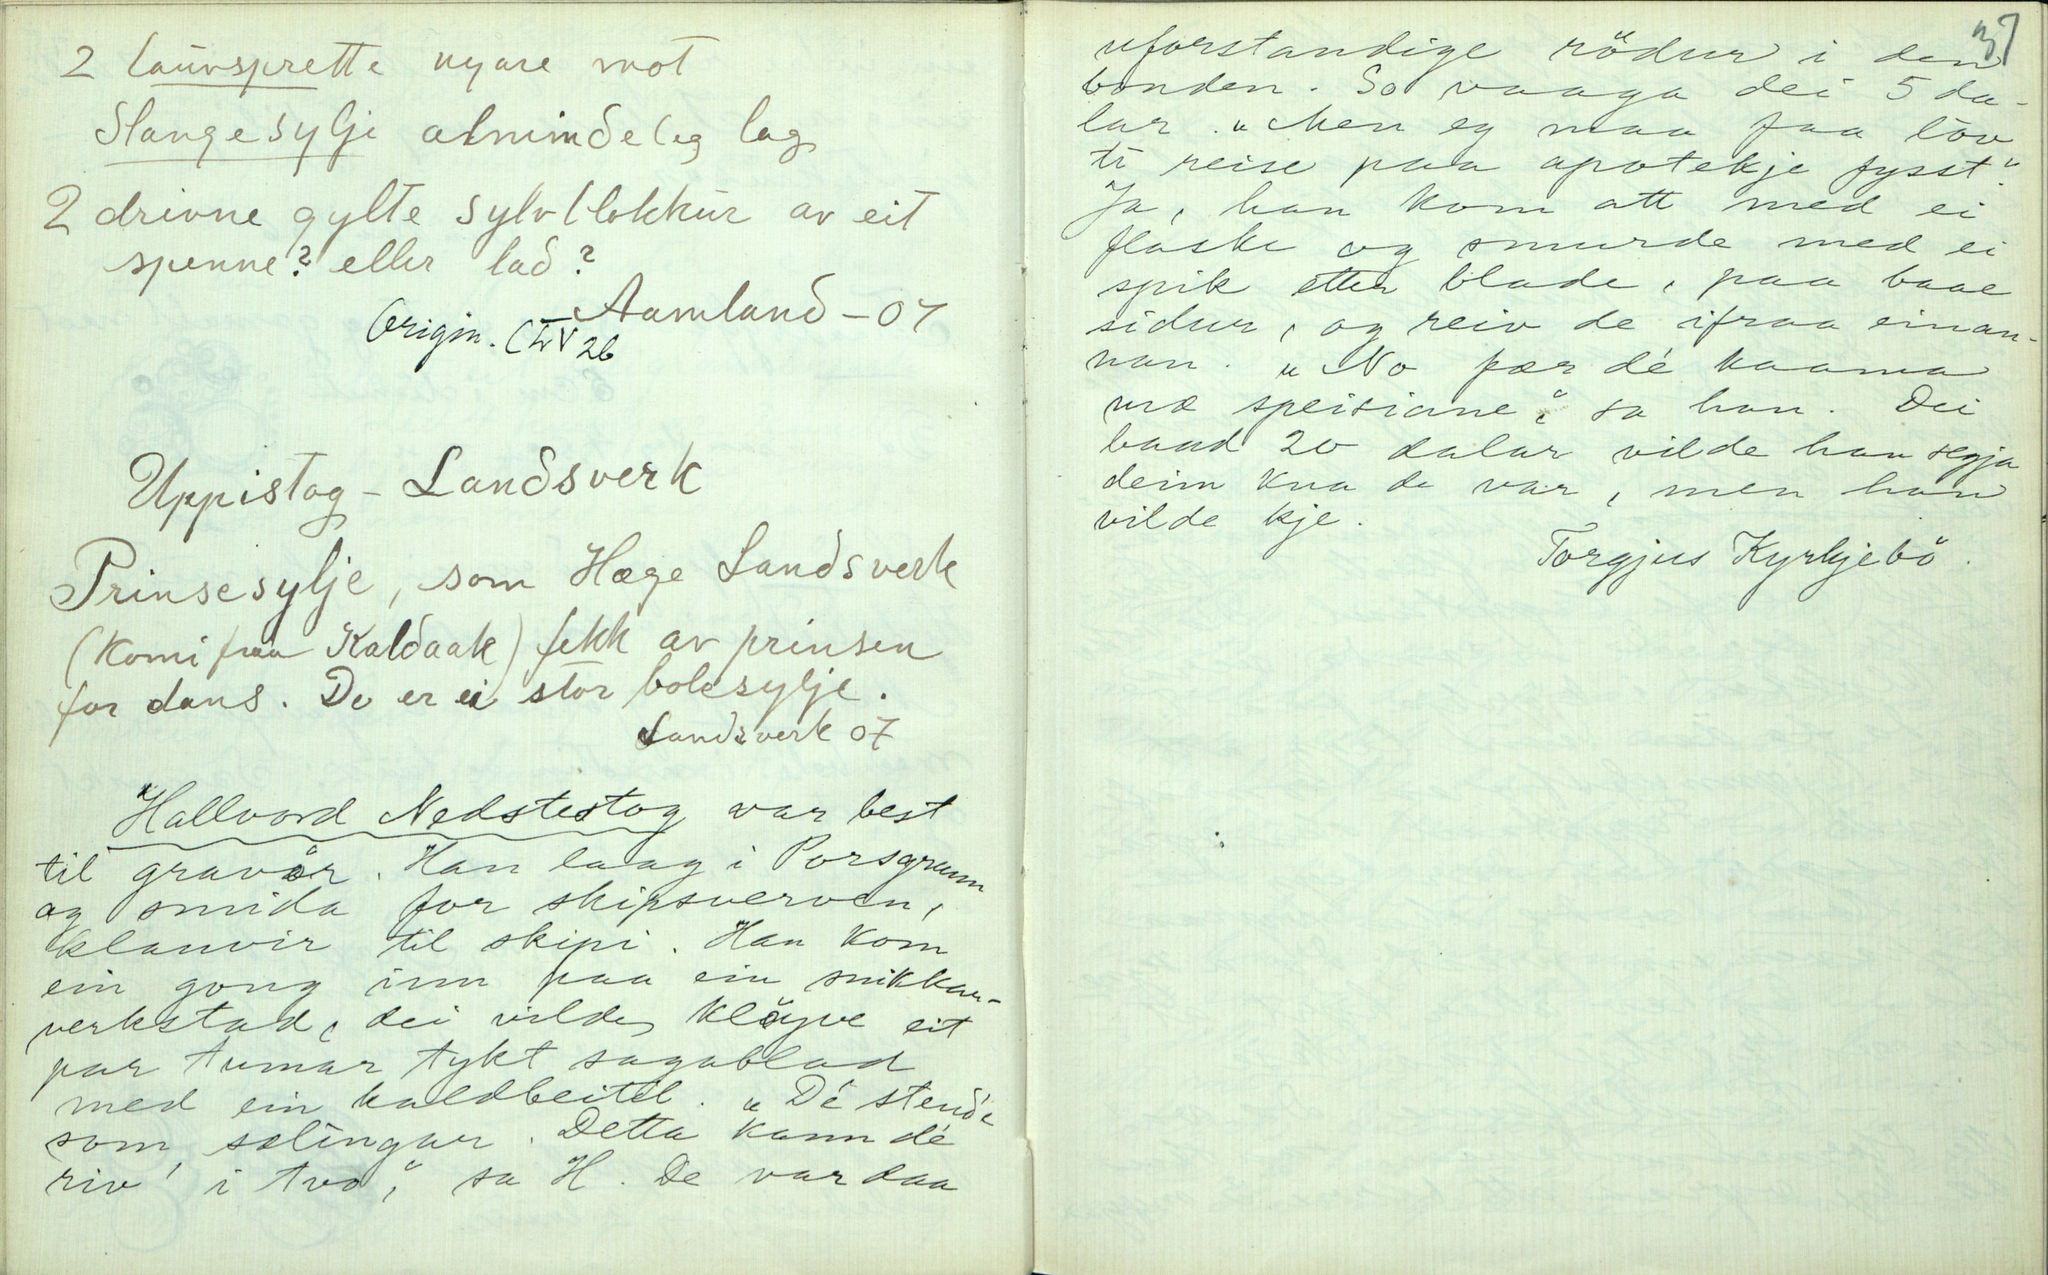 2 lauvsprette nyare mot
Slangesylje almindeleg lag
2 drivne gylte sylvklokkur av eit
spenne? eller lad?
Aamland - 07
Origin. CXV 26
Uppistog - Landsverk
Prinsesylje, som Hæge Landsverk
(komi fraa Kaldaak) fekk av prinsen
for dans. De er ei stor bolesylje.
Landsverk 07
Hallvord Nedstestog var best
til gravør. Han laag i Porsgrunn
og smida for skipsverven,
klauvir til skipi. Han kom
ein gong inn paa ein snikkar-
verkstad, dei vilde kløyve eit
par tumar tykt sagablad
med ein kaldbeitel. „Dé stend'e
som sølingar. Detta kann dé
riv' i tvo", sa H. De var daa
37
uforstandige rödur i den
bonden. So vaaga dei 5 da-
lar. „Men eg maa faa löv
ti reise paa apotekje fysst."
Ja, han kom att med ei
flaske og smurde med ei
spik etter blade, paa baae
sidur, og reiv de ifraa einan-
nan. „No fær dé kaama
mæ speisiane", sa han. Dei
baud 20 dalar vilde han segja
deim kva de var, men han
vilde kje.
Torgjus Kyrkjebö.